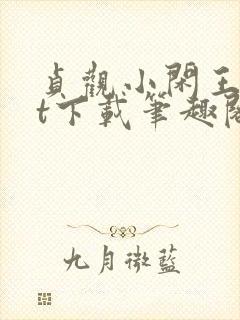 貞觀小閑王
t下載筆趣閣
九月微藍